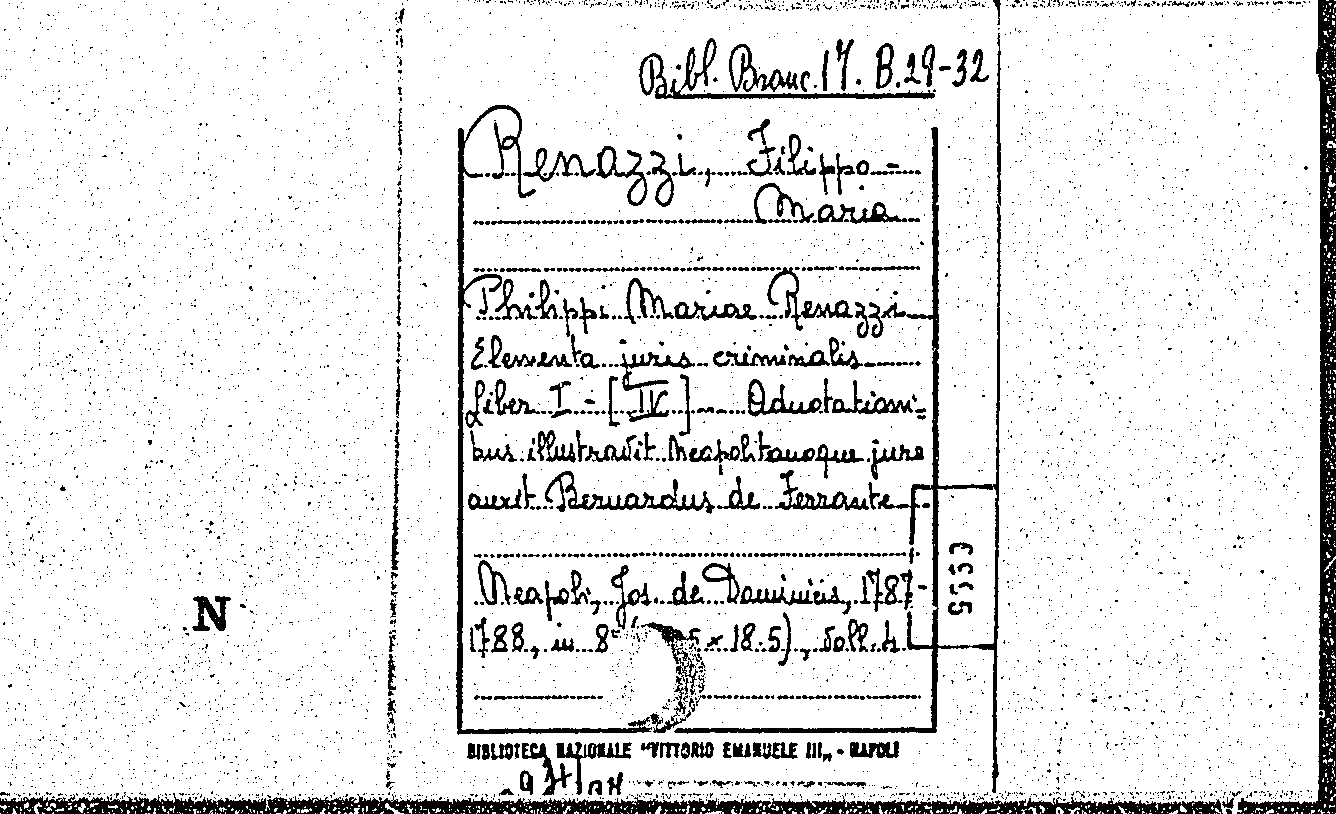 Bibl. Branc. 17. B. 29-32
Renazzi, Filippo-
Maria
Philippi Mariae Renazzi
Elementa juris criminalis
Liber I - [IV] Adnotationi=
bus illustravit Neapolitanoque jure
auxit Bernardus de Ferrante
Neapoli, Jos. de Dominicis, 1787-
1788, in 8° 5 x 18.5), voll. 4
N
BIBLIOTECA NAZIONALE "VITTORIO EMANUELE III„ - NAPOLI